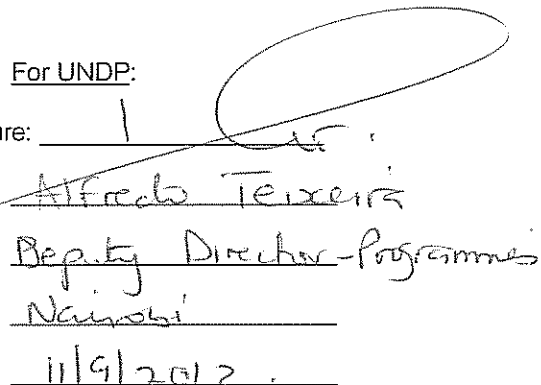 For UNDP:
ure:
Alfredo Teixeira
Deputy Director-Programmes
Nairobi
11/9/2012.